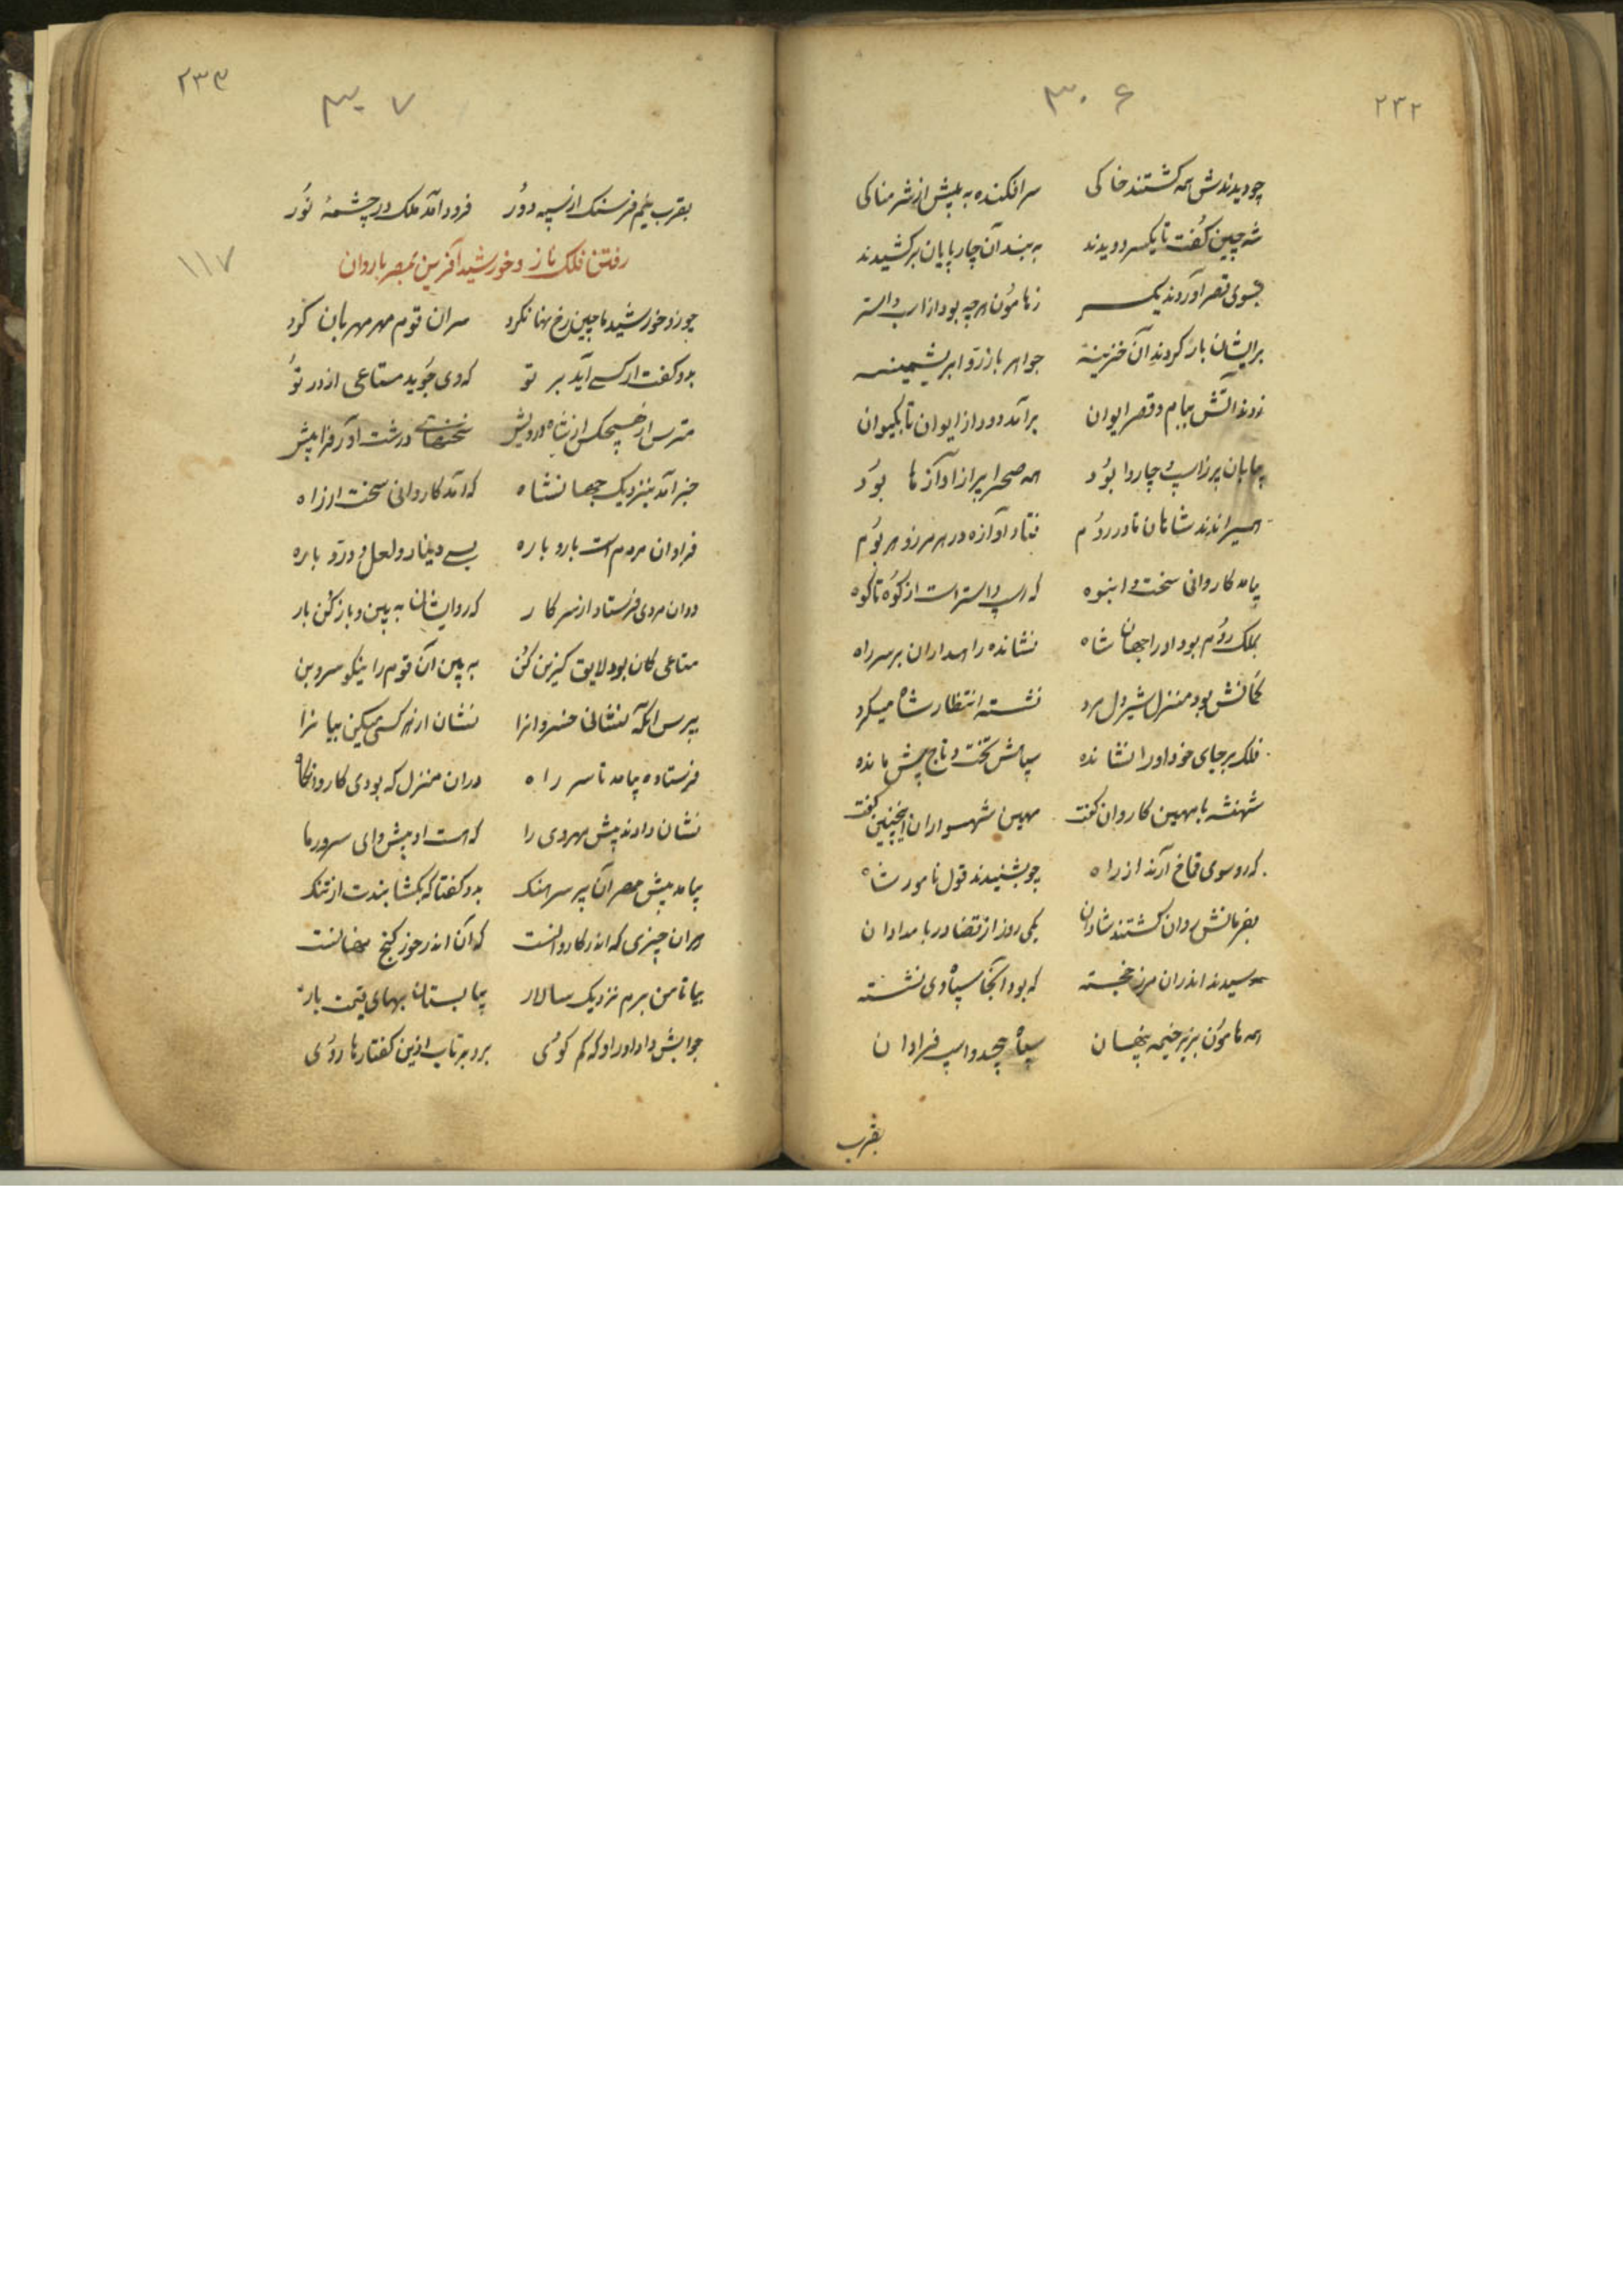 ۲۳۲
۳۰۶
چو دیدندش همه کشتند خاکی سر افکنده به پیش از شرمناکی
شه چین کفت تا یکسر دویدند به بند آن چارپایان برکشیدند
بسوی قصر آوردند یکسر ز هامون هر چه بود از اسپ و استر
بر ایشان بار کردند آن خزینه جواهر باز زر و ابریشمینه
زدند آتش ببام و قصر ایوان برآمد دود از ایوان تا بکیوان
بیابان پر ز اسپ و چاروا بود همه صحرا پر از آوازها بود
همیراندند شاهان تا در روم فتاد آوازه در هر مرز و هر بوم
بیامد کاروانی سخت و انبوه که اسپ و استر است از کوه تا کوه
بملک روم بود او را جهان شاه نشانده راهداران بر سر راه
کمانش بود منزل شیردل مرد نشسته انتظار شاه میکرد
فلک بر جای خود او را نشانده سپاهش تخت و تاج پیش مانده
شهنشه با مهین کاروان کفت مهین شهسواران اینچنین کفت
که رو سوی فراخ آرند از راه چو بشنیدند قول نامور شاه
بفرمانش روان کشتند شادان یکی روز از قضا در بامدادان
رسیدند اندران مرز خجسته که بود آنجا سپاه وی نشسته
همه هامون بزیر خیمه پنهان سپاه بیحد و اسپ فراوان
بقرب
۲۳۳
۳۰۷
بقرب نیم فرسنک از سپه دور فرود آمد ملک در چشمه نور
رفتن فلک ناز و خورشید آفرین بمصر باروان
۱۱۷
چو زد خورشید ما چین رخ نهان کرد سران قوم مهر مهربان کرد
بدو کفت ار کسی آید بر تو که وی جوید متاعی از در تو
مترس از هیچکس از شاه و درویش سخنهای درشت آور فرا پیش
خبر آمد بنزدیک جهانشاه که آمد کاروانی سخت از راه
فراوان مردم است بار و باره بسی دینار و لعل و در و یاره
دوان مردی فرستاد از سر کار که رو ایشان به بین و باز کن بار
متاعی کان بود لایق کزین کن به بین آن قوم را نیکو سر و بن
بپرس آنکه نشانی خسروانرا نشان از هر کسی میکن بیانرا
فرستاده بیامد تا سر راه دران منزل که بودی کاروانکاه
نشان دادند پیش مهر وی را که هست او پیشوای سرور ما
بیامد پیش مهر آن پیر سرهنک بدو کفتا که بکشا بندت از تنک
هران چیزی که اندر کاروانست که آن اندر خور کنج نهانست
بیا تا من برم نزدیک سالار بیا بستان بهای قیمت بار
جوابش داد او را که کم کوی برو برتاب ازین کفتارها روی